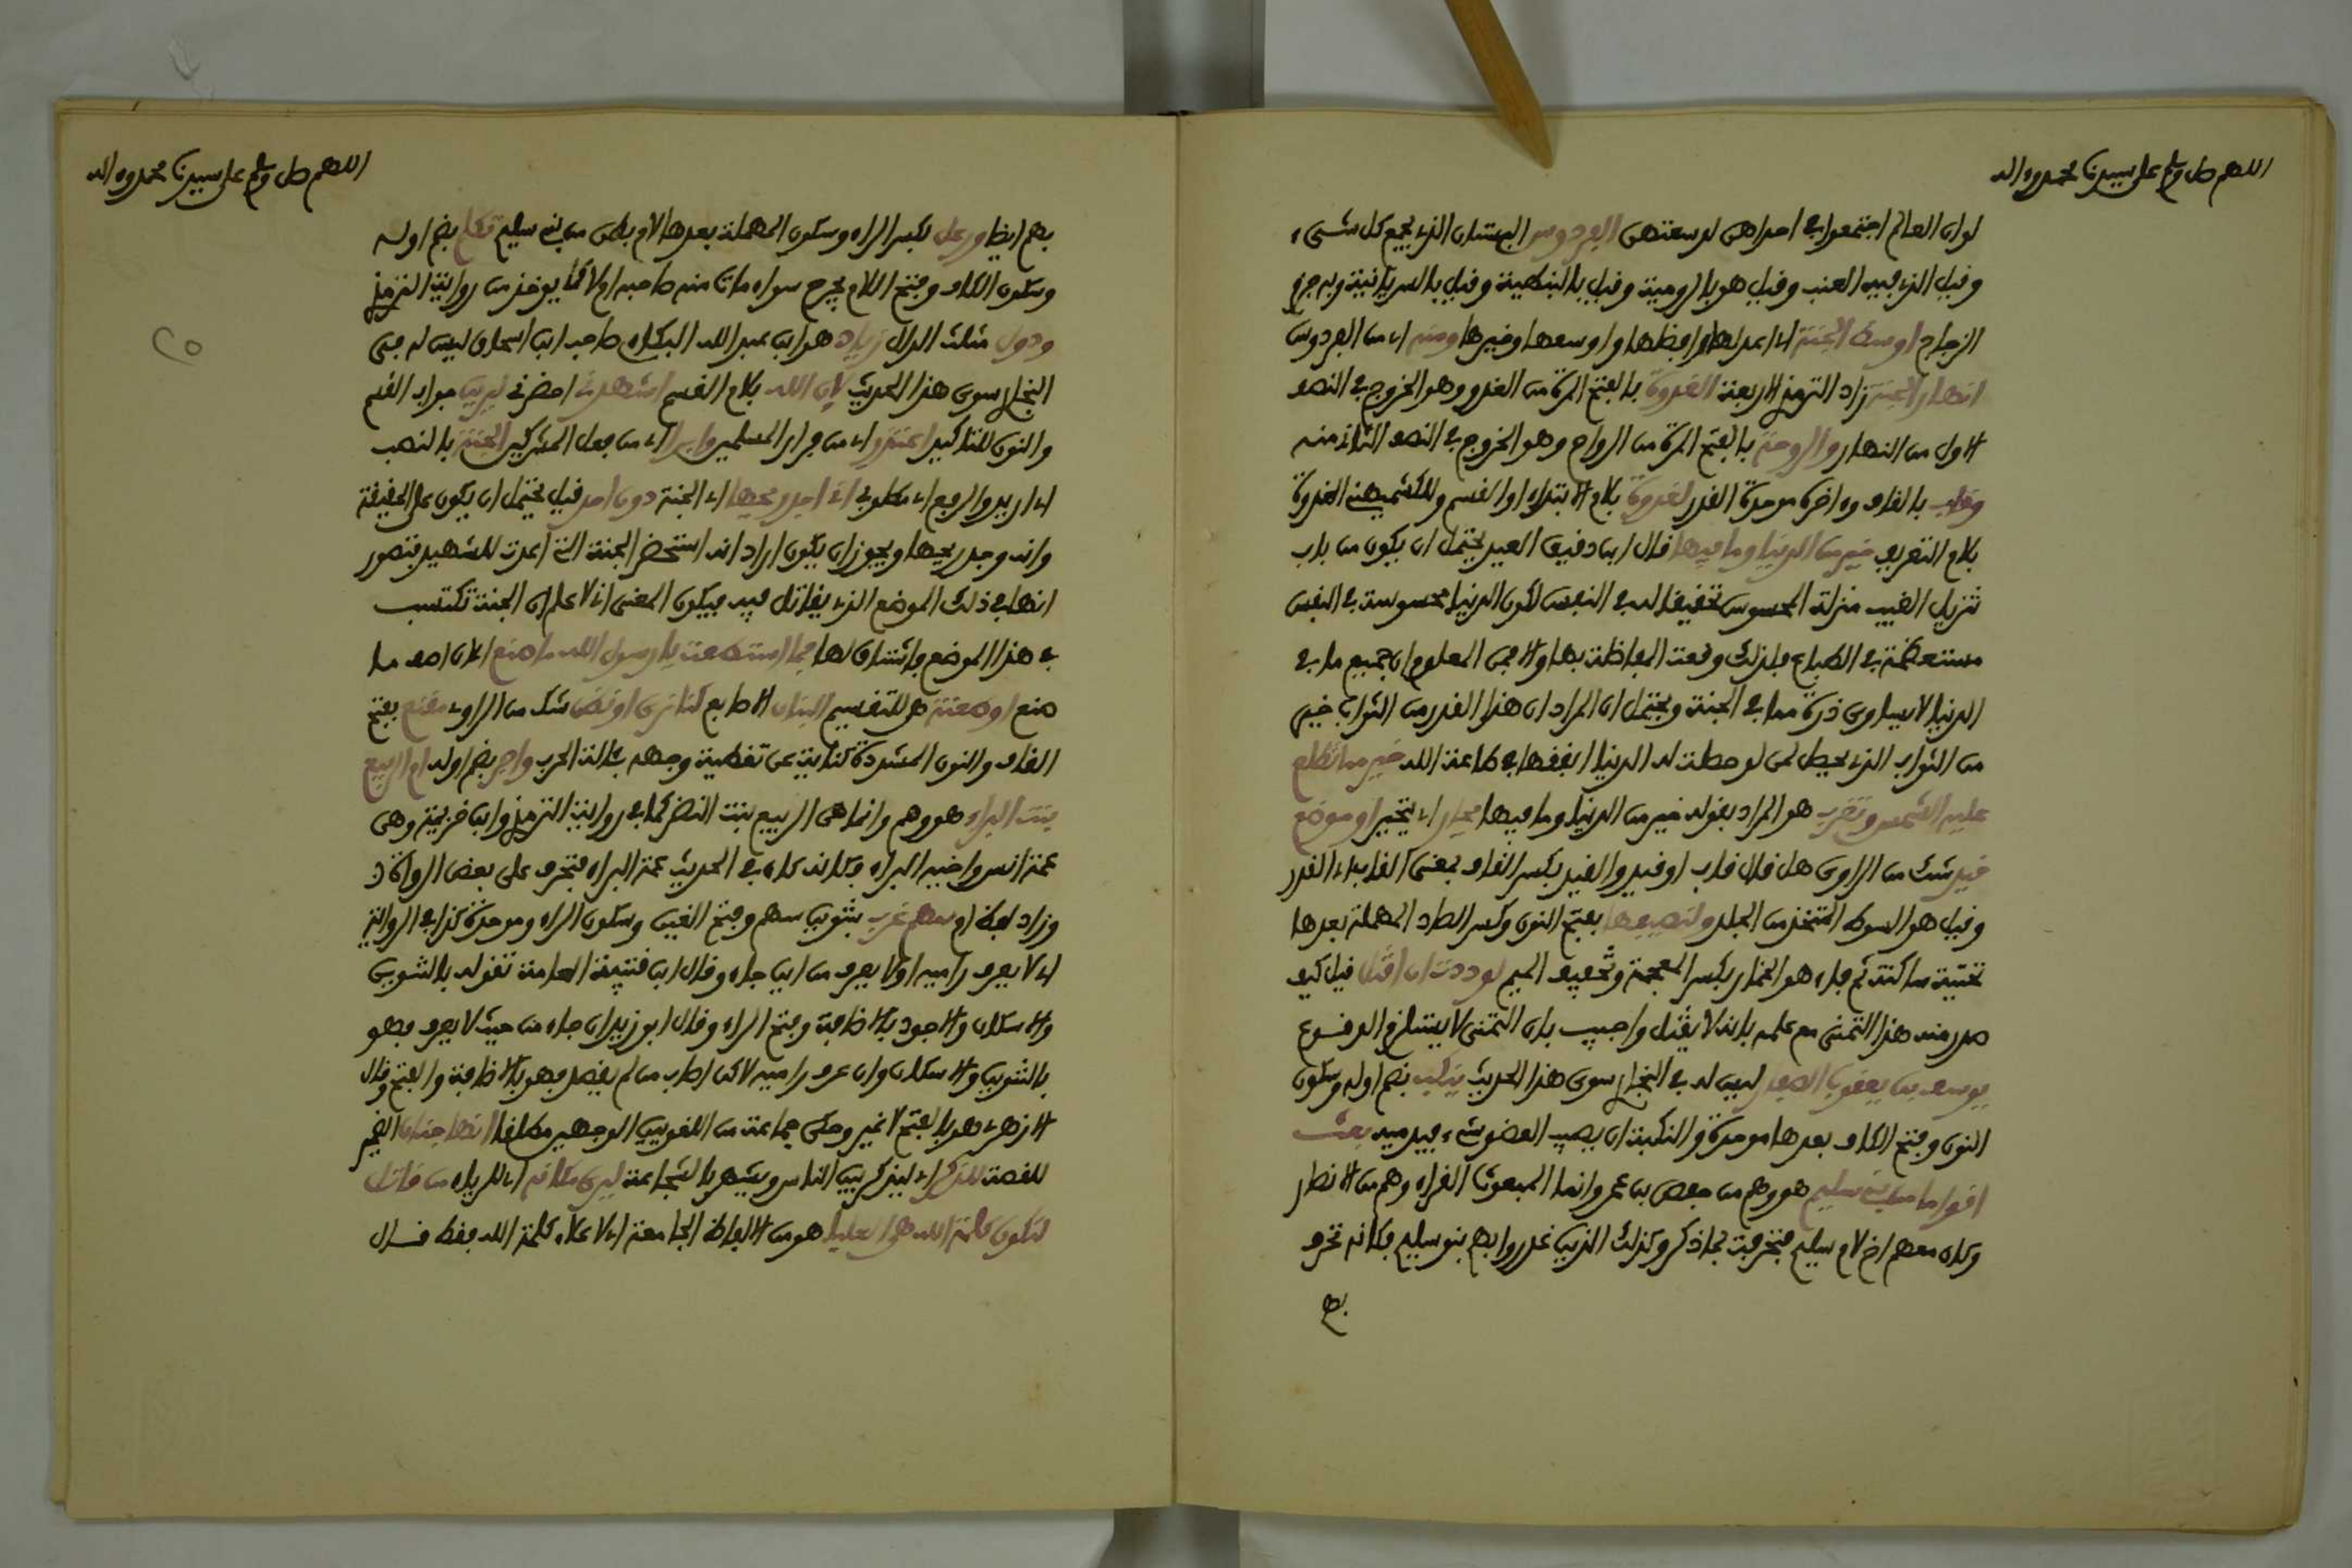 اللهم صل وسلم على سيدنا محمد وءاله
لو ان العالم اجتمعوا في احداهن لوسعتهن الفردوس البستان الذي يجمع كل شيء
وقيل الذي فيه العنب وقيل هو بالرومية وقيل بالنبطية وقيل بالسريانية وبه جزم
الزجاج اوسط الجنة اي اعدلها وافضلها واوسعها وخيرها ومنه اي من الفردوس
انهار الجنة زاد الترمذي الاربعة الغدوة بالفتح المرة من الغدو وهو الخروج في النصف
الاول من النهار والروحة بالفتح المرة من الرواح وهو الخروج في النصف الثاني منه
وقاب بالقاف وءاخره موحدة القدر لغدوة بلام الابتداء او القسم وللكشميهني الغدوة
بلام التعريف خير من الدنيا وما فيها قال ابن دقيق العيد يحتمل ان يكون من باب
تنزيل الغيب منزلة المحسوس تحقيقا له في النفس لكون الدنيا محسوسة في النفس
مستعظمة في الطباع فلذلك وقعت المفاضلة بها والا فمن المعلوم ان جميع ما في
الدنيا لا يساوي ذرة مما في الجنة ويحتمل ان المراد ان هذا القدر من الثواب خير
من الثواب الذي يحصل لمن لو حصلت له الدنيا انفقها في طاعة الله خير مما تطلع
عليه الشمس وتغرب هو المراد بقوله خير من الدنيا وما فيها يحار اي يتحير او موضع
قيد شك من الراوي هل قال قاب او قيد والقيد بكسر القاف بمعنى القاب اي القدر
وقيل هو السوط المتخذ من الجلد ولنصيفها بفتح النون وكسر الصاد المهملة بعدها
تحتية ساكنة ثم فاء هو الخمار بكسر المعجمة وتخفيف الميم لوددت ان اقتل قيل كيف
صدر منه هذا التمني مع علمه بانه لا يقتل واجيب بان التمني لا يستلزم الوقوع
يوسف بن يعقوب الصفار ليس له في البخاري سوى هذا الحديث ينكب بضم اوله وسكون
النون وفتح الكاف بعدها موحدة والنكبة ان يصيب العضو شيء فيدميه بعث
اقواما من بني سليم هو وهم من حفص بن عمر وانما المبعوث القراء وهم من الانصار
وكان معهم اخ لام سليم فتحرفت بما ذكر وكذلك الذين غدروا بهم بنو سليم فكانه تحرف
بهم
اللهم صل وسلم على سيدنا محمد وءاله
٢٥
بهم ايضا ورعل بكسر الراء وسكون المهملة بعدها لام بطن من بني سليم تكلم بضم اوله
وسكون الكاف وفتح اللام يجرح سواء مات منه صاحبه ام لا كما يؤخذ من رواية الترمذي
ودول مثلث الدال زياد هو ابن عبد الله البكاءي صاحب ابن اسحاق ليس له في
البخاري سوى هذا الحديث لان الله بلام القسم اشهدني احضرني ليرين جواب القسم
والنون للتاكيد اعتذر اي من فرار المسلمين وابرا اي من فعل المشركين الجنة بالنصب
اي اريد والرفع اي مطلوبي اني اجد ريحها اي الجنة دون احد قيل يحتمل ان يكون على الحقيقة
وانه وجد ريحها ويجوز ان يكون اراد انه استحضر الجنة التي اعدت للشهيد فتصور
انها في ذلك الموضع الذي يقاتل فيه فيكون المعنى اني لاعلم ان الجنة تكتسب
في هذا الموضع فاشتاق لها فما استطعت يا رسول الله ما صنع اي ان اصف ما
صنع او طعنة هو للتقسيم البنان الاصابع كنا نرى او نظن شك من الراوي مقنع بفتح
القاف والنون المشددة كناية عن تغطية وجهه بئالة الحرب واجر بضم اوله ام الربيع
بنت البراء هو وهم وانما هي الربيع بنت النضر كما في رواية الترمذي وابن خزيمة وهي
عمة انس واخيه البراء فكانه كان في الحديث عمة البراء فتحرف على بعض الرواة
وزاد لفظ ام سهم غرب بتنوين سهم وفتح الغين وسكون الراء وموحدة كذا في الرواية
اي لا يعرف راميه او لا يعرف من اين جاء وقال ابن قتيبة العامة تقوله بالتنوين
والاسكان والاجود بالاضافة وفتح الراء وقال ابو زيد ان جاء من حيث لا يعرف فهو
بالتنوين والاسكان وان عرف راميه لاكن اصاب من لم يقصد فهو بالاضافة والفتح وقال
الازهري هو بالفتح لا غير وحكى جماعة من اللغويين الوجهين مطلقا انها جنان الضمير
للقصة للذكر اي ليذكر بين الناس ويشتهر بالشجاعة ليرى مكانه اي للرياء من قاتل
لتكون كلمة الله هي العليا هو من الالفاظ الجامعة اي لا علاء كلمة الله فقط قال